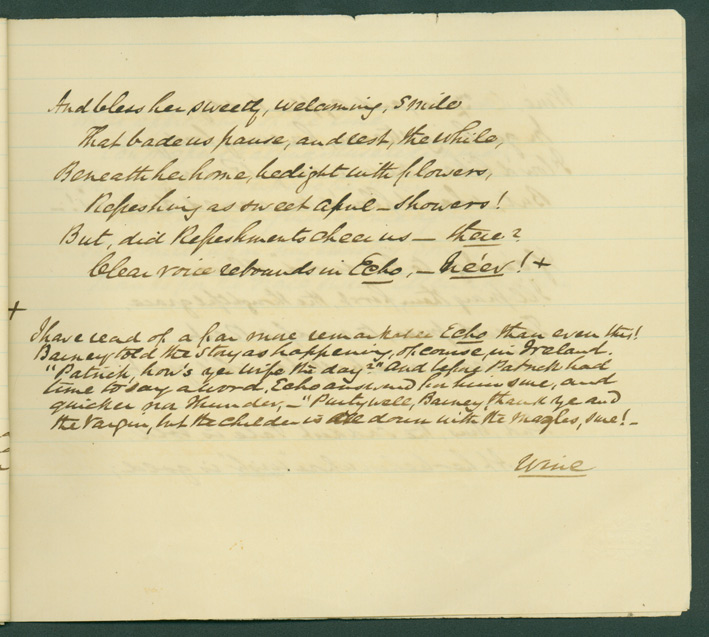 And bless her sweetly, welcoming, smile
That bade us pause, and rest, the while,
Beneath her home, bedight with flowers,
Refreshing as sweet April-showers!
But, did Refreshments cheer us — there?
Clear voice rebounds in Echo, — Ne'er! +
+
I have read of a far more remarkable Echo than even this!
Barney told the Story as happening, of course, in Ireland.
"Patrick, how's yer wife the day?" And before Patrick had
time to say a word, Echo answered for him sure, and
quicker nor Thunder, — "Purty well, Barney, thank ye and
the Vargin, but the childer is all down with the Mazles, sure! —
Wine